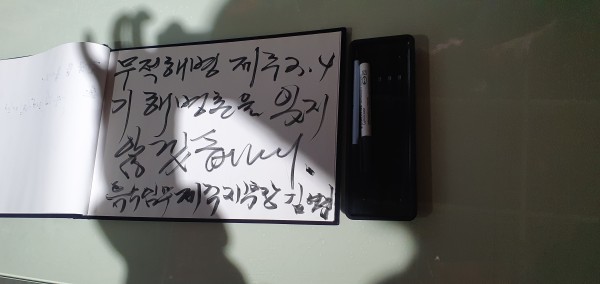 무적해병 제주3.4
기 해병혼을 잊지
않겠습니다.
특수임무제주지부장 김